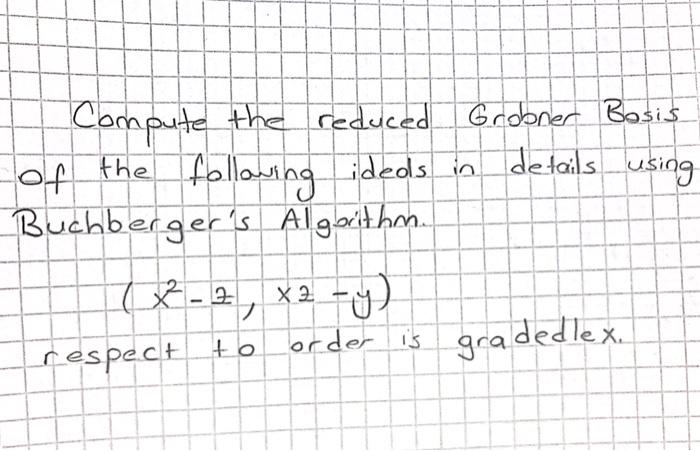 Compute the reduced Grobner Basis
of the following ideals in details using
Buchberger's Algorithm.
(x² - z, xz - y)
respect to order is gradedlex.